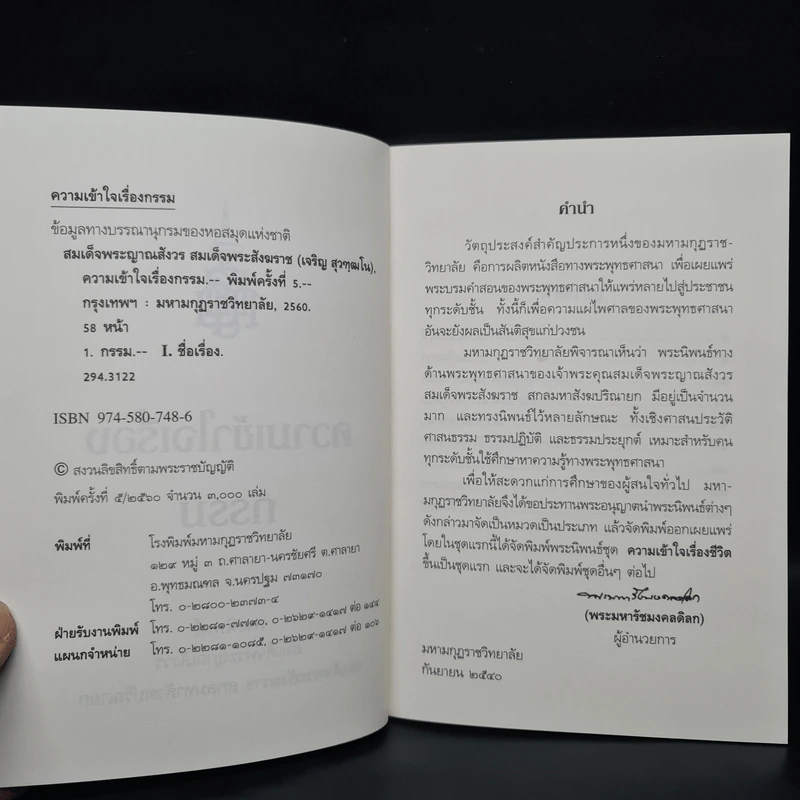 ความเข้าใจเรื่องกรรม
ข้อมูลทางบรรณานุกรมของหอสมุดแห่งชาติ
สมเด็จพระญาณสังวร สมเด็จพระสังฆราช (เจริญ สุวฑฺฒโน),
ความเข้าใจเรื่องกรรม.-- พิมพ์ครั้งที่ 5.--
กรุงเทพฯ : มหามกุฏราชวิทยาลัย, 2560.
58 หน้า
1. กรรม.-- I. ชื่อเรื่อง.
294.3122
ISBN 974-580-748-6
© สงวนลิขสิทธิ์ตามพระราชบัญญัติ
พิมพ์ครั้งที่ ๕/๒๕๖๐ จำนวน ๓,๐๐๐ เล่ม
พิมพ์ที่ โรงพิมพ์มหามกุฏราชวิทยาลัย
๑๒๙ หมู่ ๓ ถ.ศาลายา-นครชัยศรี ต.ศาลายา
อ.พุทธมณฑล จ.นครปฐม ๗๓๑๗๐
โทร. ๐-๒๘๐๐-๒๓๗๓-๔
ฝ่ายรับงานพิมพ์ โทร. ๐-๒๒๘๑-๗๗๙๐, ๐-๒๖๒๙-๑๔๑๗ ต่อ ๑๔๔
แผนกจำหน่าย โทร. ๐-๒๒๘๑-๑๐๘๕, ๐-๒๖๒๙-๑๔๑๗ ต่อ ๑๐๖
คำนำ
วัตถุประสงค์สำคัญประการหนึ่งของมหามกุฏราช-
วิทยาลัย คือการผลิตหนังสือทางพระพุทธศาสนา เพื่อเผยแพร่
พระบรมคำสอนของพระพุทธศาสนาให้แพร่หลายไปสู่ประชาชน
ทุกระดับชั้น ทั้งนี้ก็เพื่อความแผ่ไพศาลของพระพุทธศาสนา
อันจะยังผลเป็นสันติสุขแก่ปวงชน
มหามกุฏราชวิทยาลัยพิจารณาเห็นว่า พระนิพนธ์ทาง
ด้านพระพุทธศาสนาของเจ้าพระคุณสมเด็จพระญาณสังวร
สมเด็จพระสังฆราช สกลมหาสังฆปริณายก มีอยู่เป็นจำนวน
มาก และทรงนิพนธ์ไว้หลายลักษณะ ทั้งเชิงศาสนประวัติ
ศาสนธรรม ธรรมปฏิบัติ และธรรมประยุกต์ เหมาะสำหรับคน
ทุกระดับชั้นใช้ศึกษาหาความรู้ทางพระพุทธศาสนา
เพื่อให้สะดวกแก่การศึกษาของผู้สนใจทั่วไป มหา-
มกุฏราชวิทยาลัยจึงได้ขอประทานพระอนุญาตนำพระนิพนธ์ต่างๆ
ดังกล่าวมาจัดเป็นหมวดเป็นประเภท แล้วจัดพิมพ์ออกเผยแพร่
โดยในชุดแรกนี้ได้จัดพิมพ์พระนิพนธ์ชุด ความเข้าใจเรื่องชีวิต
ขึ้นเป็นชุดแรก และจะได้จัดพิมพ์ชุดอื่นๆ ต่อไป
(พระมหารัชมงคลดิลก)
ผู้อำนวยการ
มหามกุฏราชวิทยาลัย
กันยายน ๒๕๔๐